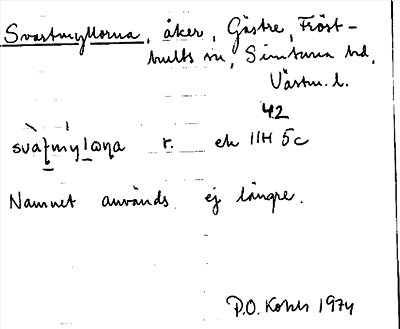 Svartmyllorna, åker, Gästre, Fröst-
hults sn, Simtuna hd,
Västm. l.
42
r. ek 11H 5c
Namnet används ej längre.
P.O. 1974